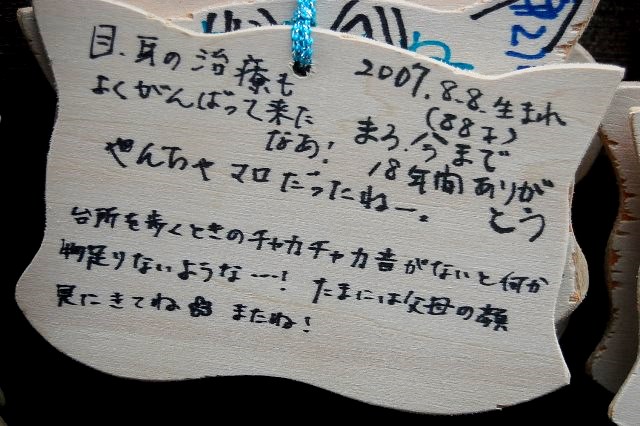 目、耳の治療も
よくがんばって来た
なあ!
やんちゃマロだったねー。
2007.8.8.生まれ
まろ、今まで
18年間ありが
とう
台所を歩くときのチャカチャカ音がないと何か
物足りないような…!
たまには父母の顔
見にきてね
またね!